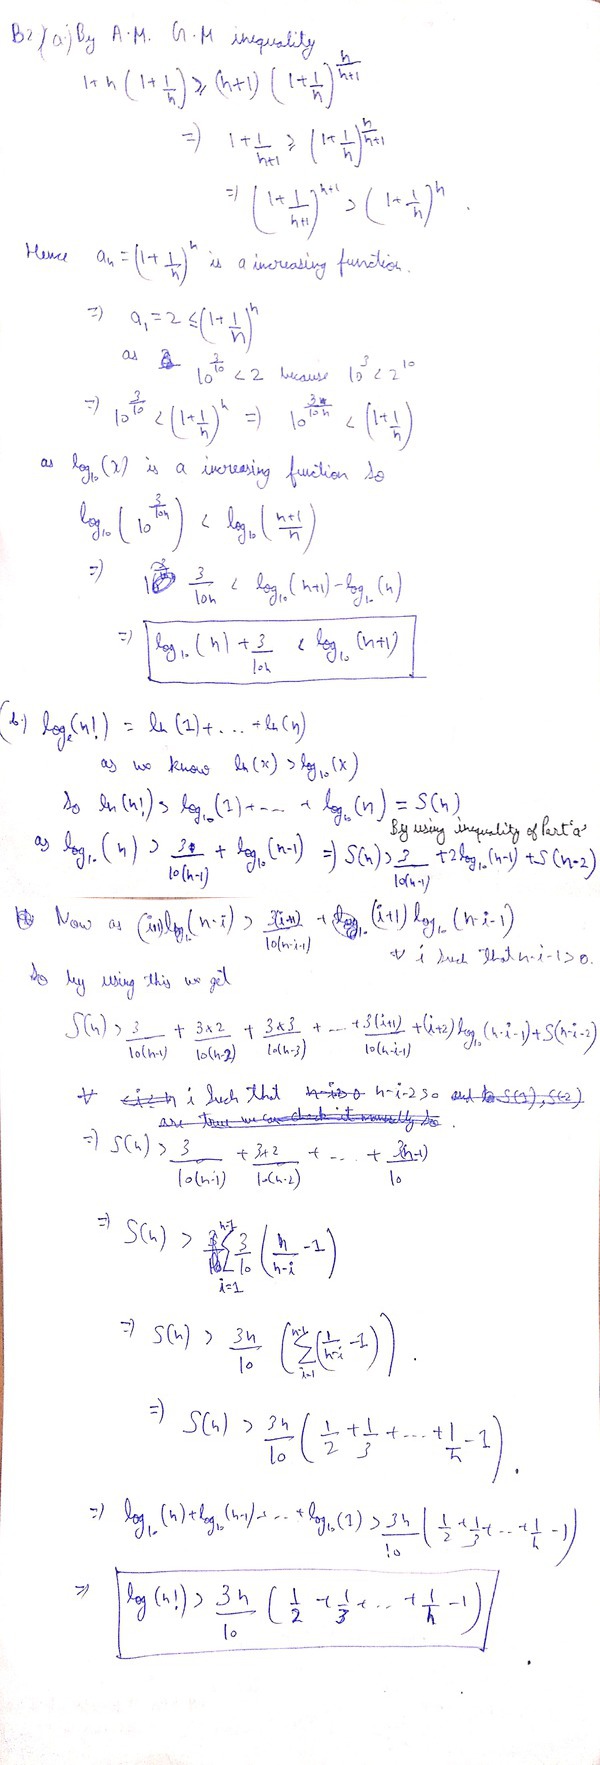 B2) (a) By A.M. G.M inequality
1+n(1+1/n) ≥ (n+1) (1+1/n)^{n/(n+1)}
⇒ 1+1/(n+1) ≥ (1+1/n)^{n/(n+1)}
⇒ (1+1/(n+1))^{n+1} > (1+1/n)^n .
Hence a_n = (1+1/n)^n is a increasing function.
⇒ a_1 = 2 ≤ (1+1/n)^n
as 10^{3/10} < 2 because 10^3 < 2^10
⇒ 10^{3/10} < (1+1/n)^n ⇒ 10^{3/10n} < (1+1/n)
as log_10(x) is a increasing function so
log_10(10^{3/10n}) < log_10((n+1)/n)
⇒ 3/10n < log_10(n+1) - log_10(n)
⇒ log_10(n) + 3/10n < log_10(n+1)
(b.) log_e(n!) = ln(1)+...+ln(n)
as we know ln(x) > log_10(x)
So ln(n!) > log_10(1)+...+log_10(n) = S(n)
By using inequality of Part 'a'
as log_10(n) > 3/10(n-1) + log_10(n-1) ⇒ S(n) > 3/10(n-1) + 2log_10(n-1) + S(n-2)
Now as (i+1)log_10(n-i) > 3(i+1)/10(n-i-1) + (i+1)log_10(n-i-1)
∀ i such that n-i-1>0.
So by using this we get
S(n) > 3/10(n-1) + 3×2/10(n-2) + 3×3/10(n-3) + ... + 3(i+1)/10(n-i-1) + (i+2)log_10(n-i-1) + S(n-i-2)
∀ i such that n-i-2>0
are true we can check it manually so.
⇒ S(n) > 3/10(n-1) + 3×2/10(n-2) + ... + 3(n-1)/10
⇒ S(n) > ∑_{i=1}^{n-1} 3/10 (n/(n-i) - 1)
⇒ S(n) > 3n/10 (∑_{i=1}^{n-1} (1/(n-i) - 1)) .
⇒ S(n) > 3n/10 (1/2 + 1/3 + ... + 1/n - 1) .
⇒ log_10(n) + log_10(n-1) + ... + log_10(1) > 3n/10 (1/2 + 1/3 + ... + 1/n - 1)
⇒ log(n!) > 3n/10 (1/2 + 1/3 + ... + 1/n - 1)